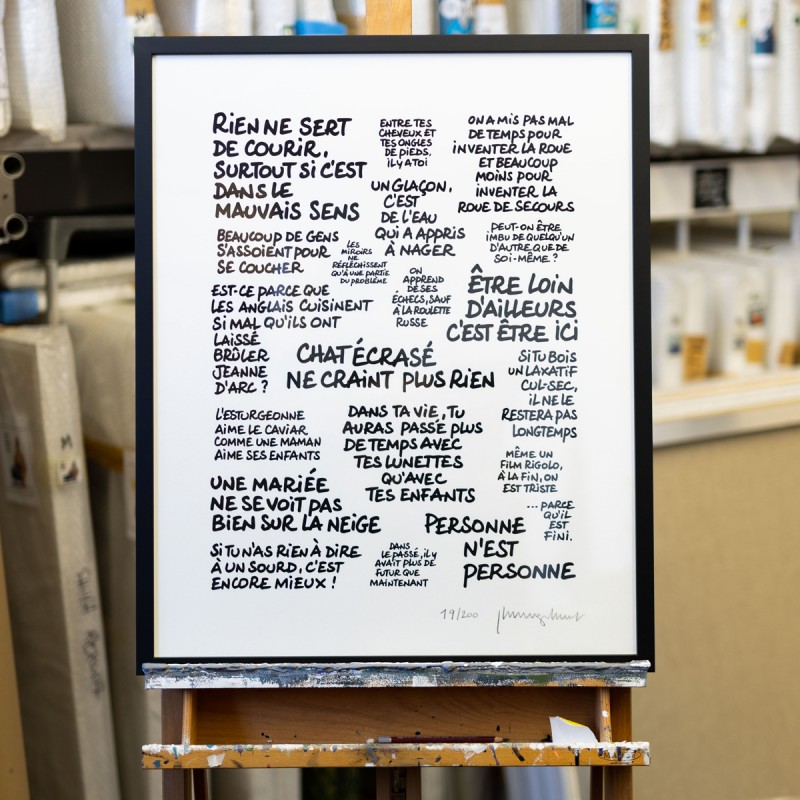 RIEN NE SERT
DE COURIR,
SURTOUT SI C'EST
DANS LE
MAUVAIS SENS
ENTRE TES
CHEVEUX ET
TES ONGLES
DE PIEDS,
IL Y A TOI
ON A MIS PAS MAL
DE TEMPS POUR
INVENTER LA ROUE
ET BEAUCOUP
MOINS POUR
INVENTER LA
ROUE DE SECOURS
UN GLAÇON,
C'EST
DE L'EAU
QUI A APPRIS
À NAGER
BEAUCOUP DE GENS
S'ASSOIENT POUR
SE COUCHER
LES
MIROIRS
NE
RÉFLÉCHISSENT
QU'À UNE PARTIE
DU PROBLÈME
PEUT-ON ÊTRE
IMBU DE QUELQU'UN
D'AUTRE QUE DE
SOI-MÊME ?
EST-CE PARCE QUE
LES ANGLAIS CUISINENT
SI MAL QU'ILS ONT
LAISSÉ
BRÛLER
JEANNE
D'ARC ?
ON
APPREND
DE SES
ÉCHECS, SAUF
À LA ROULETTE
RUSSE
ÊTRE LOIN
D'AILLEURS
C'EST ÊTRE ICI
CHAT ÉCRASÉ
NE CRAINT PLUS RIEN
SI TU BOIS
UN LAXATIF
CUL-SEC,
IL NE LE
RESTERA PAS
LONGTEMPS
L'ESTURGEONNE
AIME LE CAVIAR
COMME UNE MAMAN
AIME SES ENFANTS
DANS TA VIE, TU
AURAS PASSÉ PLUS
DE TEMPS AVEC
TES LUNETTES
QU'AVEC
TES ENFANTS
MÊME UN
FILM RIGOLO,
À LA FIN, ON
EST TRISTE
...PARCE
QU'IL
EST
FINI.
UNE MARIÉE
NE SE VOIT PAS
BIEN SUR LA NEIGE
PERSONNE
N'EST
PERSONNE
SI TU N'AS RIEN À DIRE
À UN SOURD, C'EST
ENCORE MIEUX !
DANS
LE PASSÉ, IL Y
AVAIT PLUS DE
FUTUR QUE
MAINTENANT
19/200